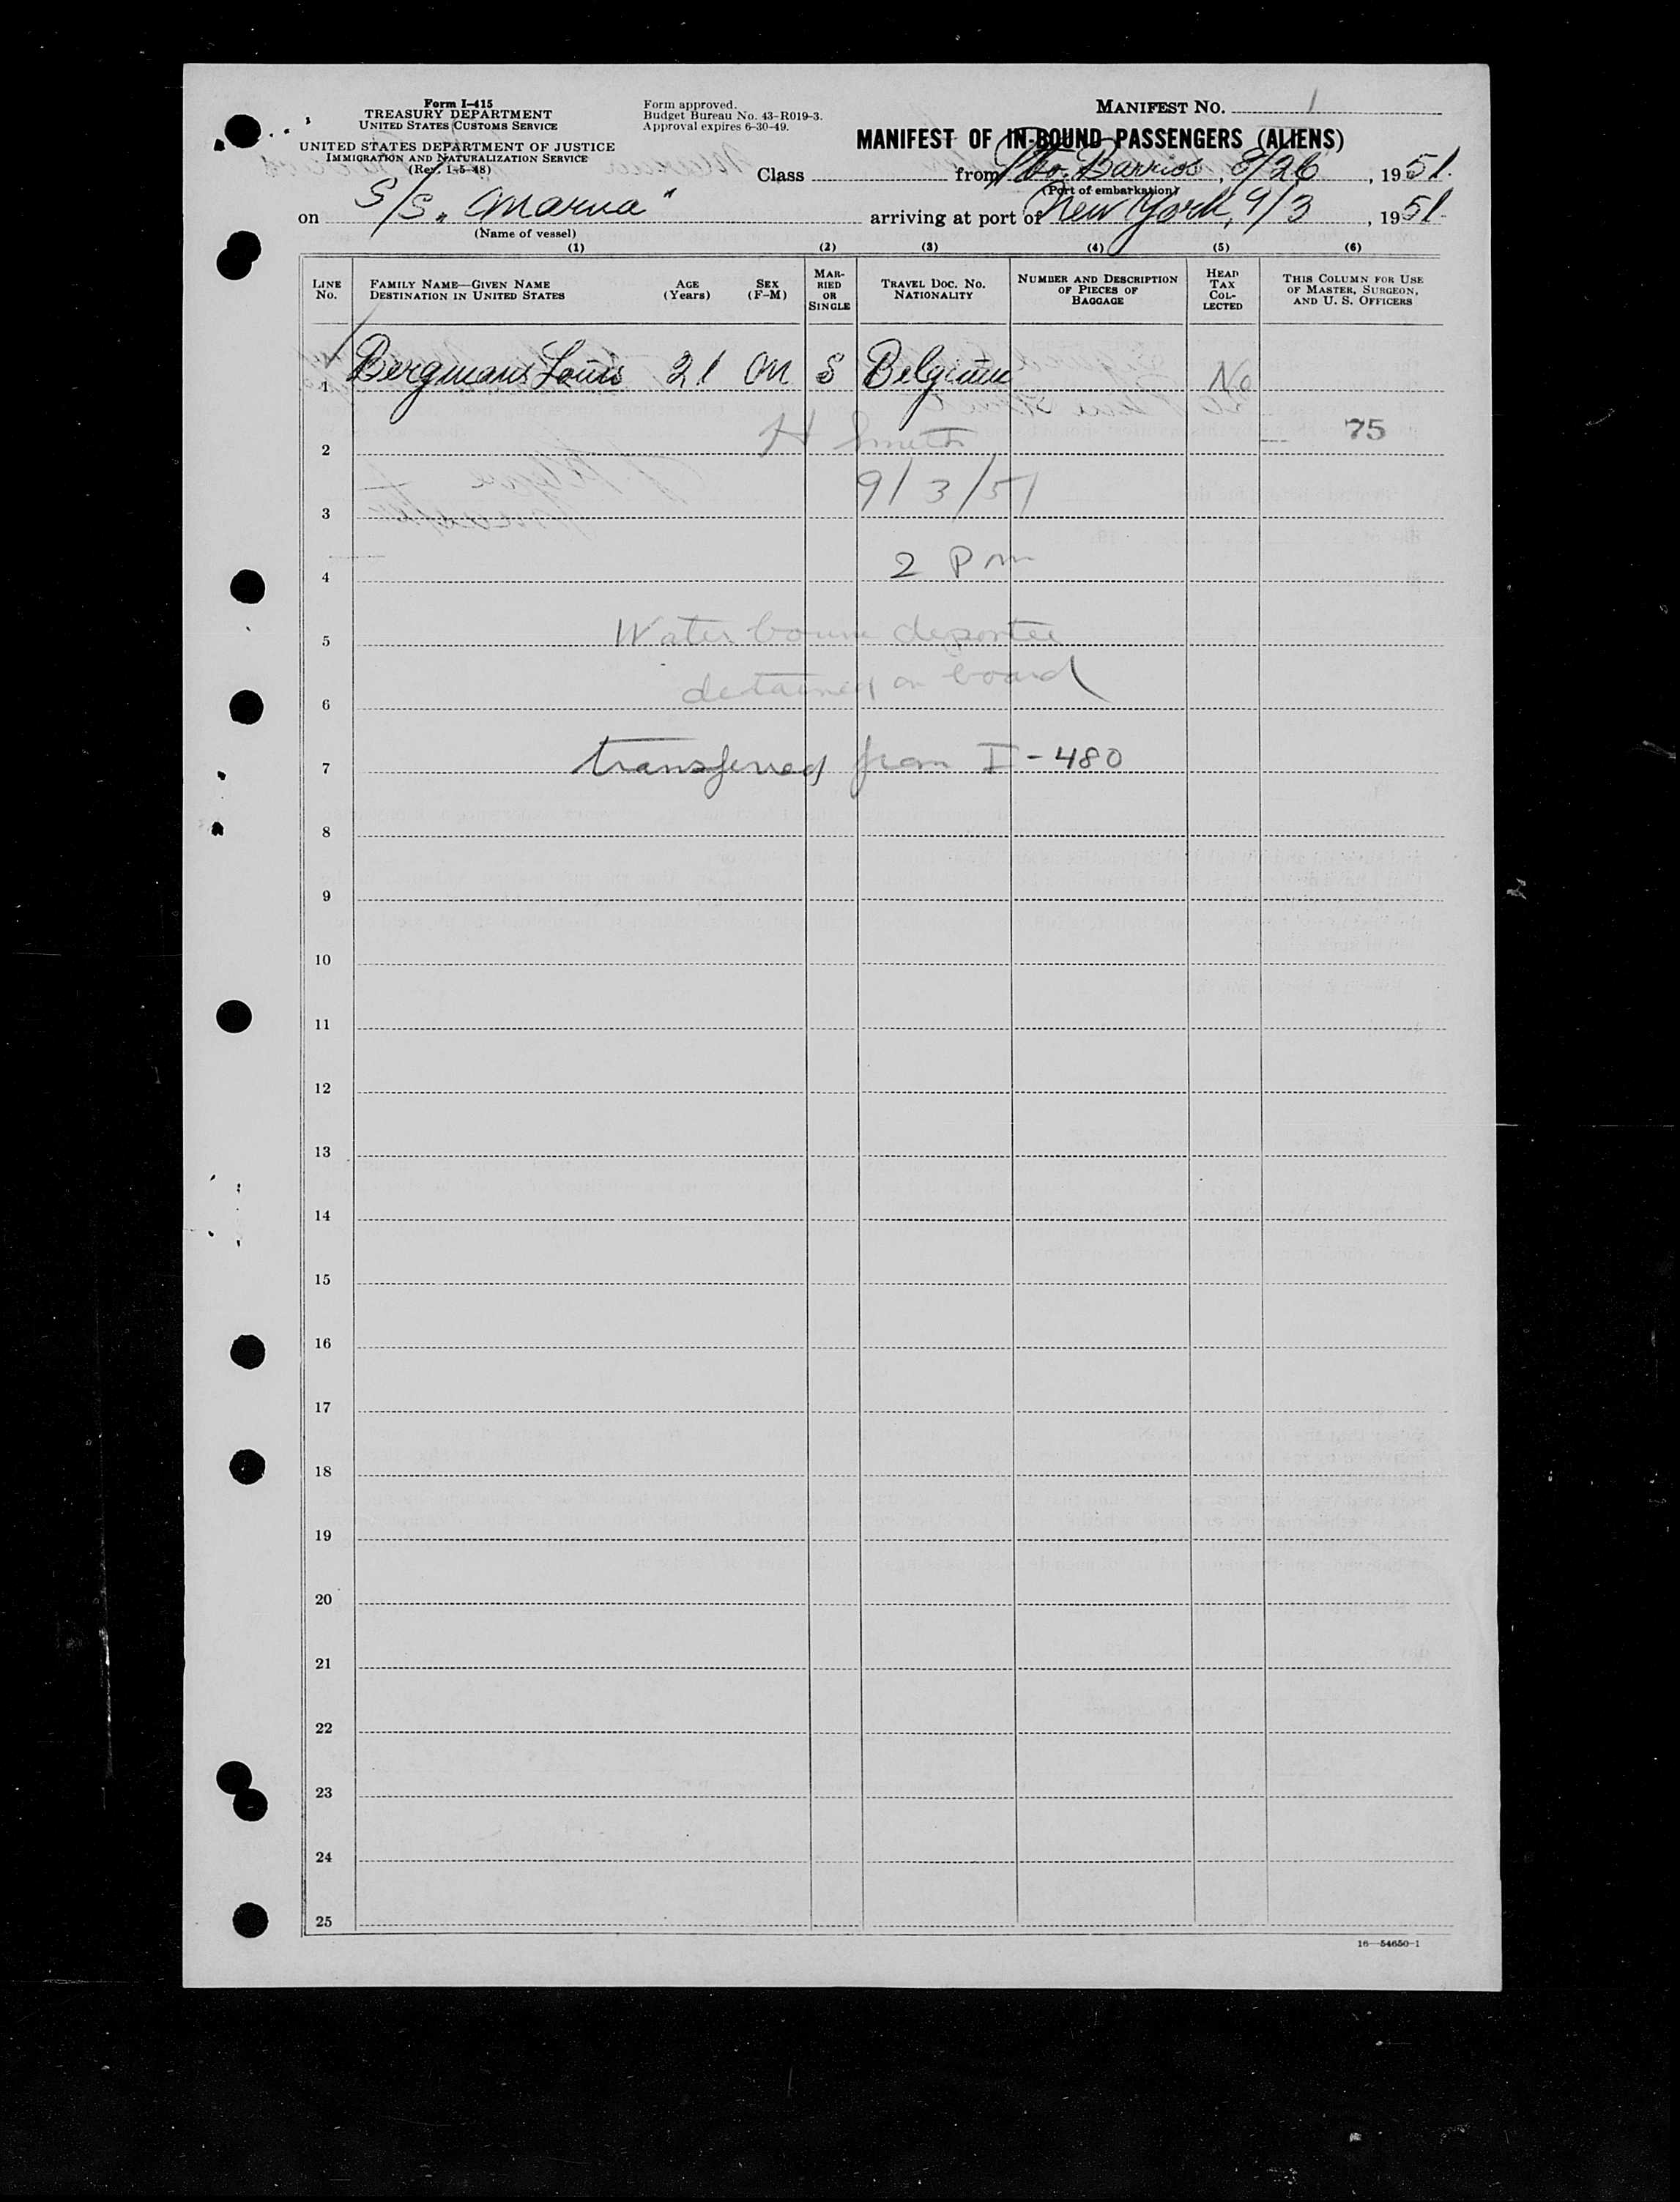 Form I-415
TREASURY DEPARTMENT
UNITED STATES CUSTOMS SERVICE
UNITED STATES DEPARTMENT OF JUSTICE
IMMIGRATION AND NATURALIZATION SERVICE
(Rev. 1-5-48)
Form approved.
Budget Bureau No. 43-R019-3.
Approval expires 6-30-49.
MANIFEST NO. 1
MANIFEST OF IN-BOUND PASSENGERS (ALIENS)
Class from Pto. Barrios, 8/26, 1951.
(Port of embarkation)
on S/S "Marna" arriving at port of New York, 9/3, 1951
(Name of vessel)
(1) (2) (3) (4) (5) (6)
LINE No. FAMILY NAME—GIVEN NAME DESTINATION IN UNITED STATES AGE (Years) SEX (F-M) MARRIED OR SINGLE TRAVEL DOC. NO. NATIONALITY NUMBER AND DESCRIPTION OF PIECES OF BAGGAGE HEAD TAX COLLECTED THIS COLUMN FOR USE OF MASTER, SURGEON, AND U. S. OFFICERS
1 Bergmans Louis 21 M S Belgium No
H Smith 75
2
9/3/51
3
2 Pm
4
5 Water borne deportee
6 detained on board
7 transferred from I-480
8
9
10
11
12
13
14
15
16
17
18
19
20
21
22
23
24
25
16—54650-1